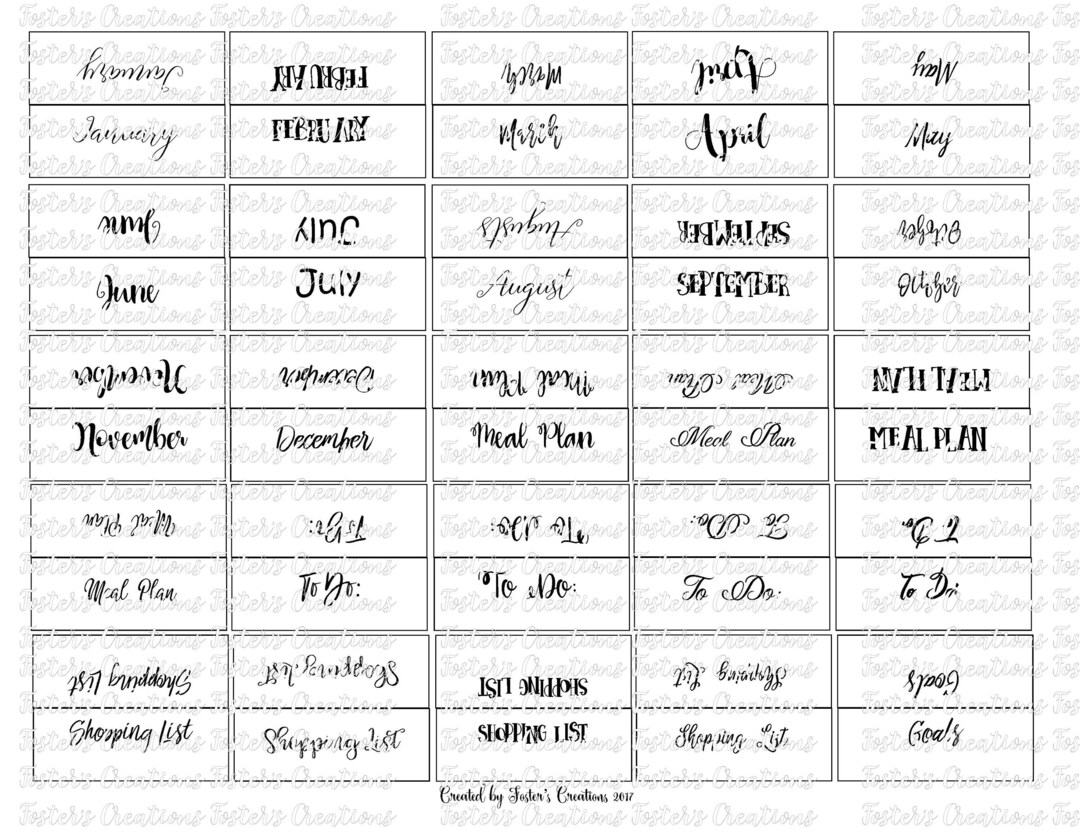 Foster's Creations Foster's Creations Foster's Creations Foster's Creations
January FEBRUARY March April May
January FEBRUARY March April May
June July August SEPTEMBER October
June July August SEPTEMBER October
November December Meal Plan Meal Plan MEAL PLAN
November December Meal Plan Meal Plan MEAL PLAN
Meal Plan To Do: To Do: To Do: To Do:
Meal Plan To Do: To Do: To Do: To Do:
Shopping List Shopping List SHOPPING LIST Shopping List Goals
Shopping List Shopping List SHOPPING LIST Shopping List Goals
Created by Foster's Creations 2017
Foster's Creations Foster's Creations Foster's Creations Foster's Creations